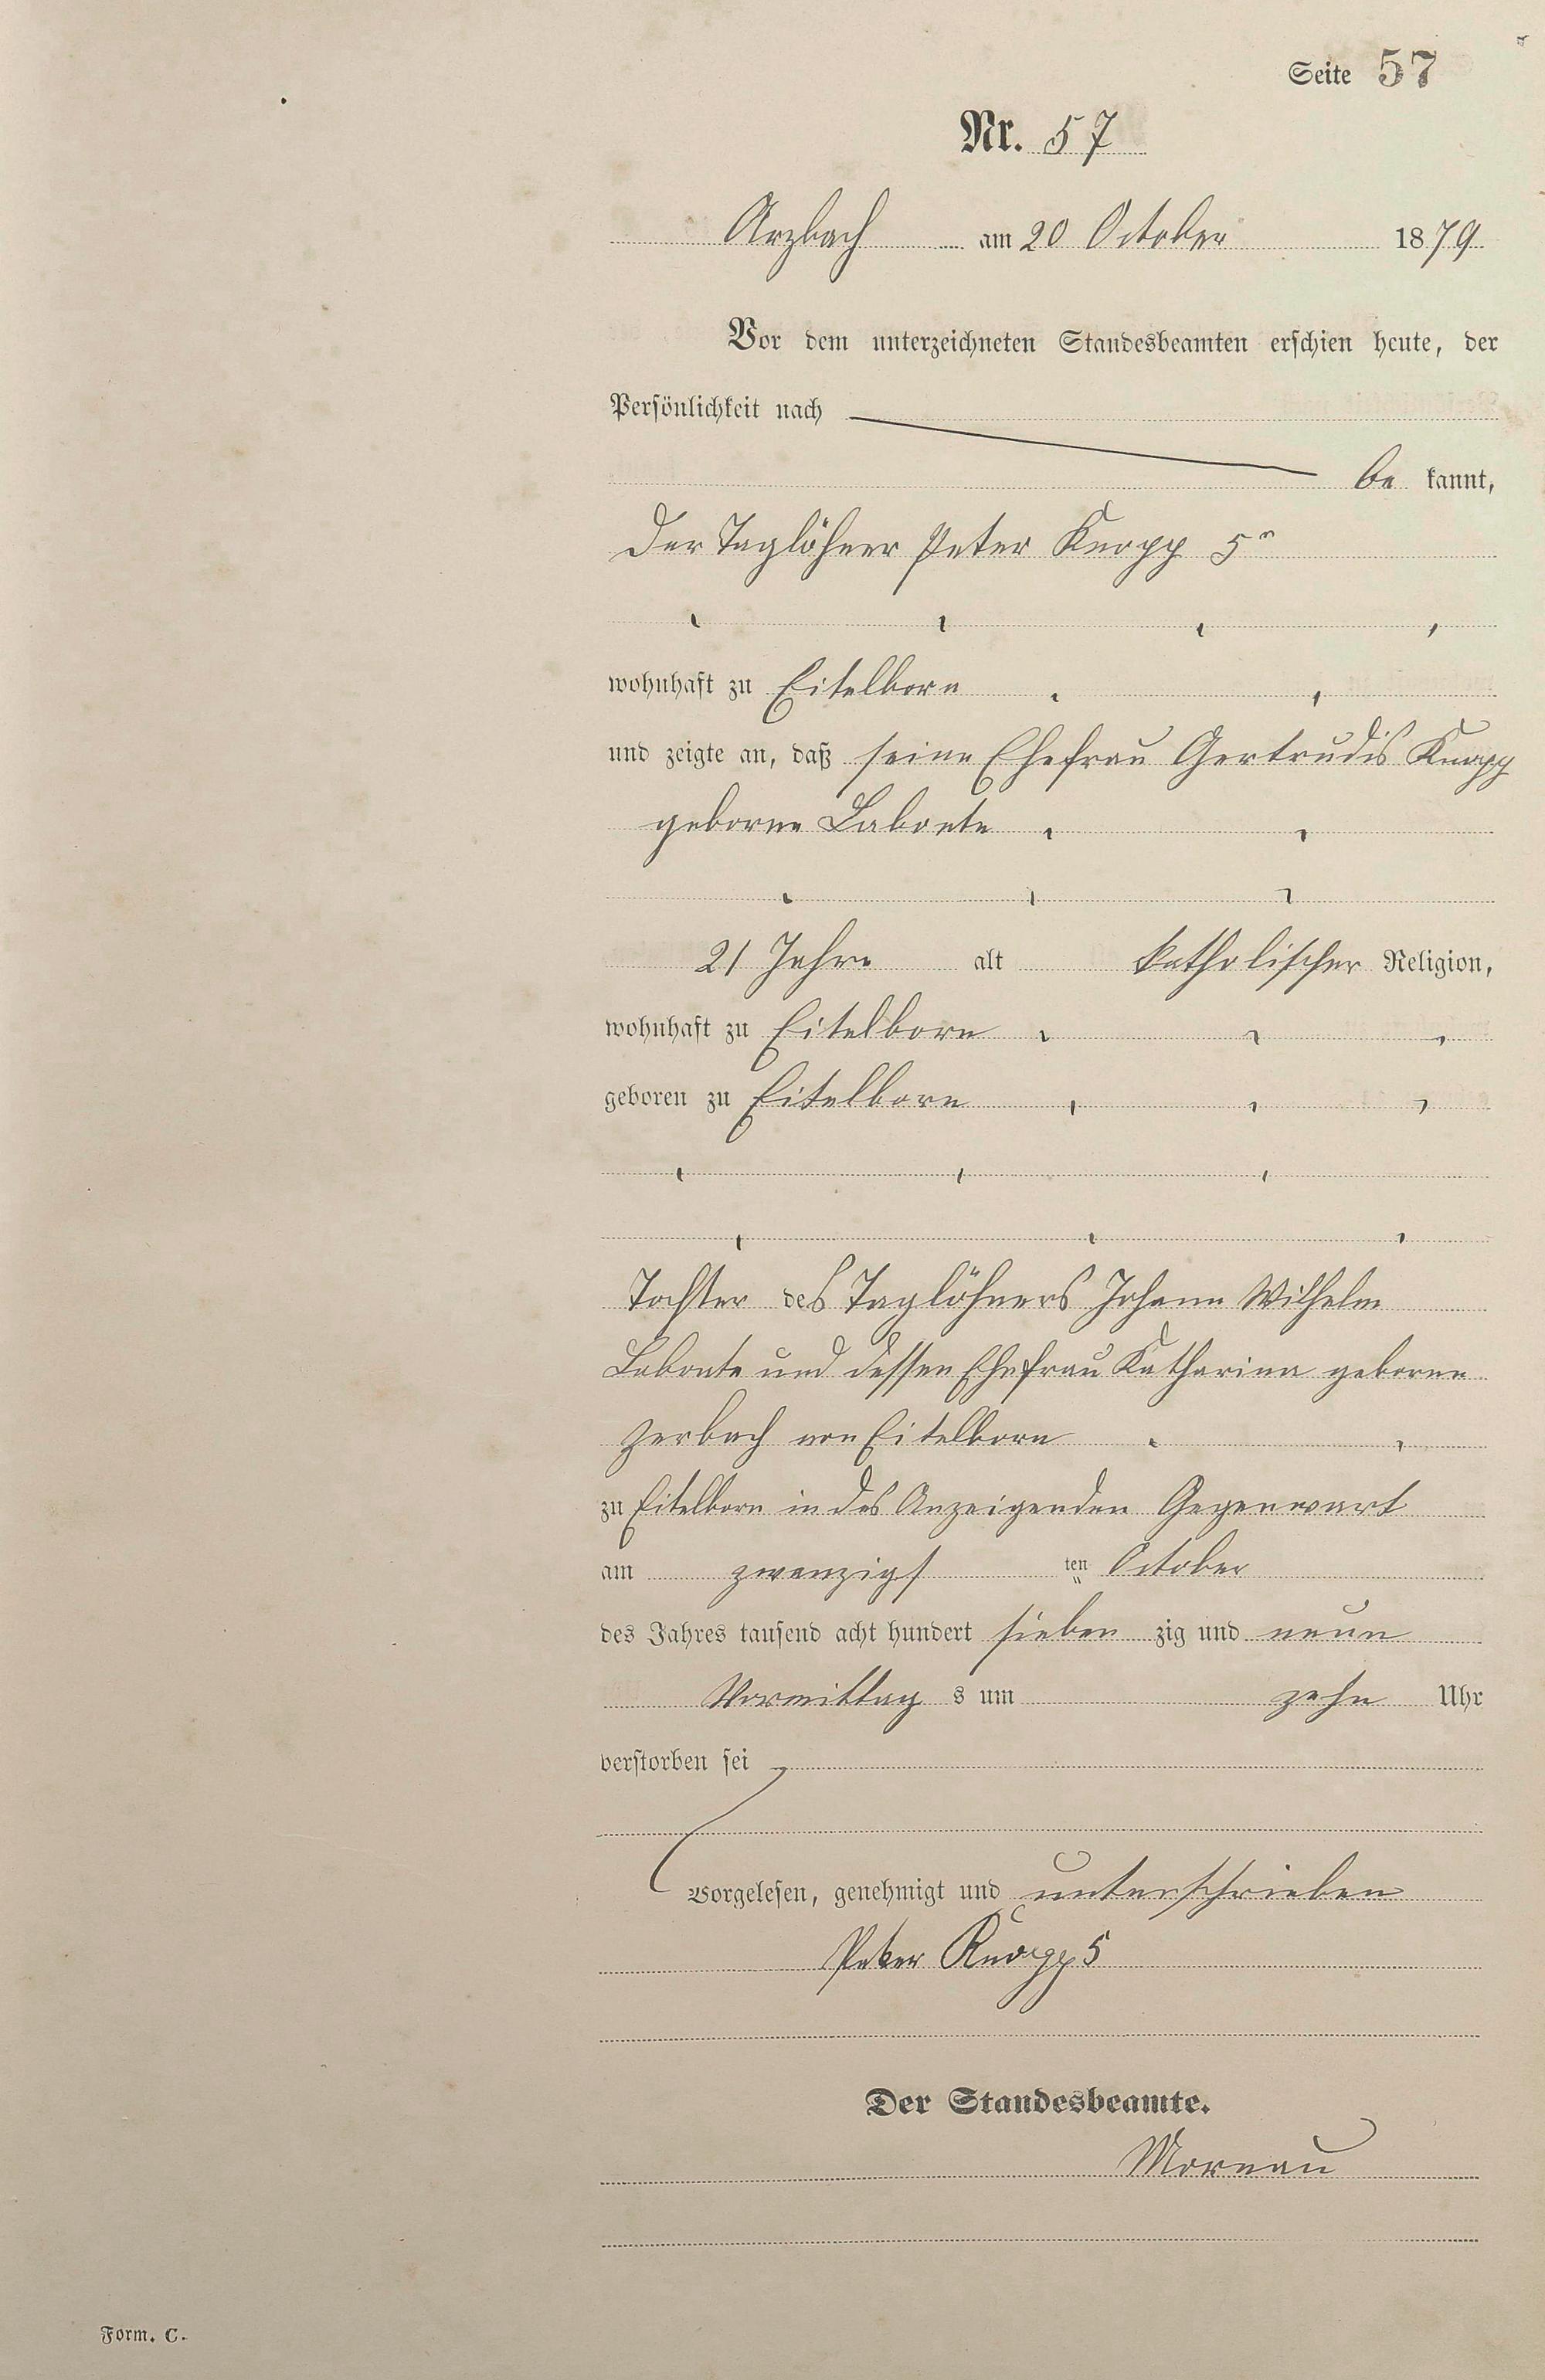 Seite 57
Nr. 57
Arzbach am 20 October 1879
Vor dem unterzeichneten Standesbeamten erschien heute, der
Persönlichkeit nach
be kannt,
der Taglöhner Peter Knopp 5r
wohnhaft zu Eitelborn
und zeigte an, daß seine Ehefrau Gertrudis Knopp
geborne Labonte
21 Jahre alt katholischer Religion,
wohnhaft zu Eitelborn
geboren zu Eitelborn
Tochter des Taglöhners Johann Wilhelm
Labonte und dessen Ehefrau Katharina geborne
Zerbach von Eitelborn
zu Eitelborn in des Anzeigenden Gegenwart
am zwanzigs ten October
des Jahres tausend acht hundert sieben zig und neun
Vormittag s um zehn Uhr
verstorben sei
Vorgelesen, genehmigt und unterschrieben
Peter Knopp 5
Der Standesbeamte.
Moreau
Form. C.